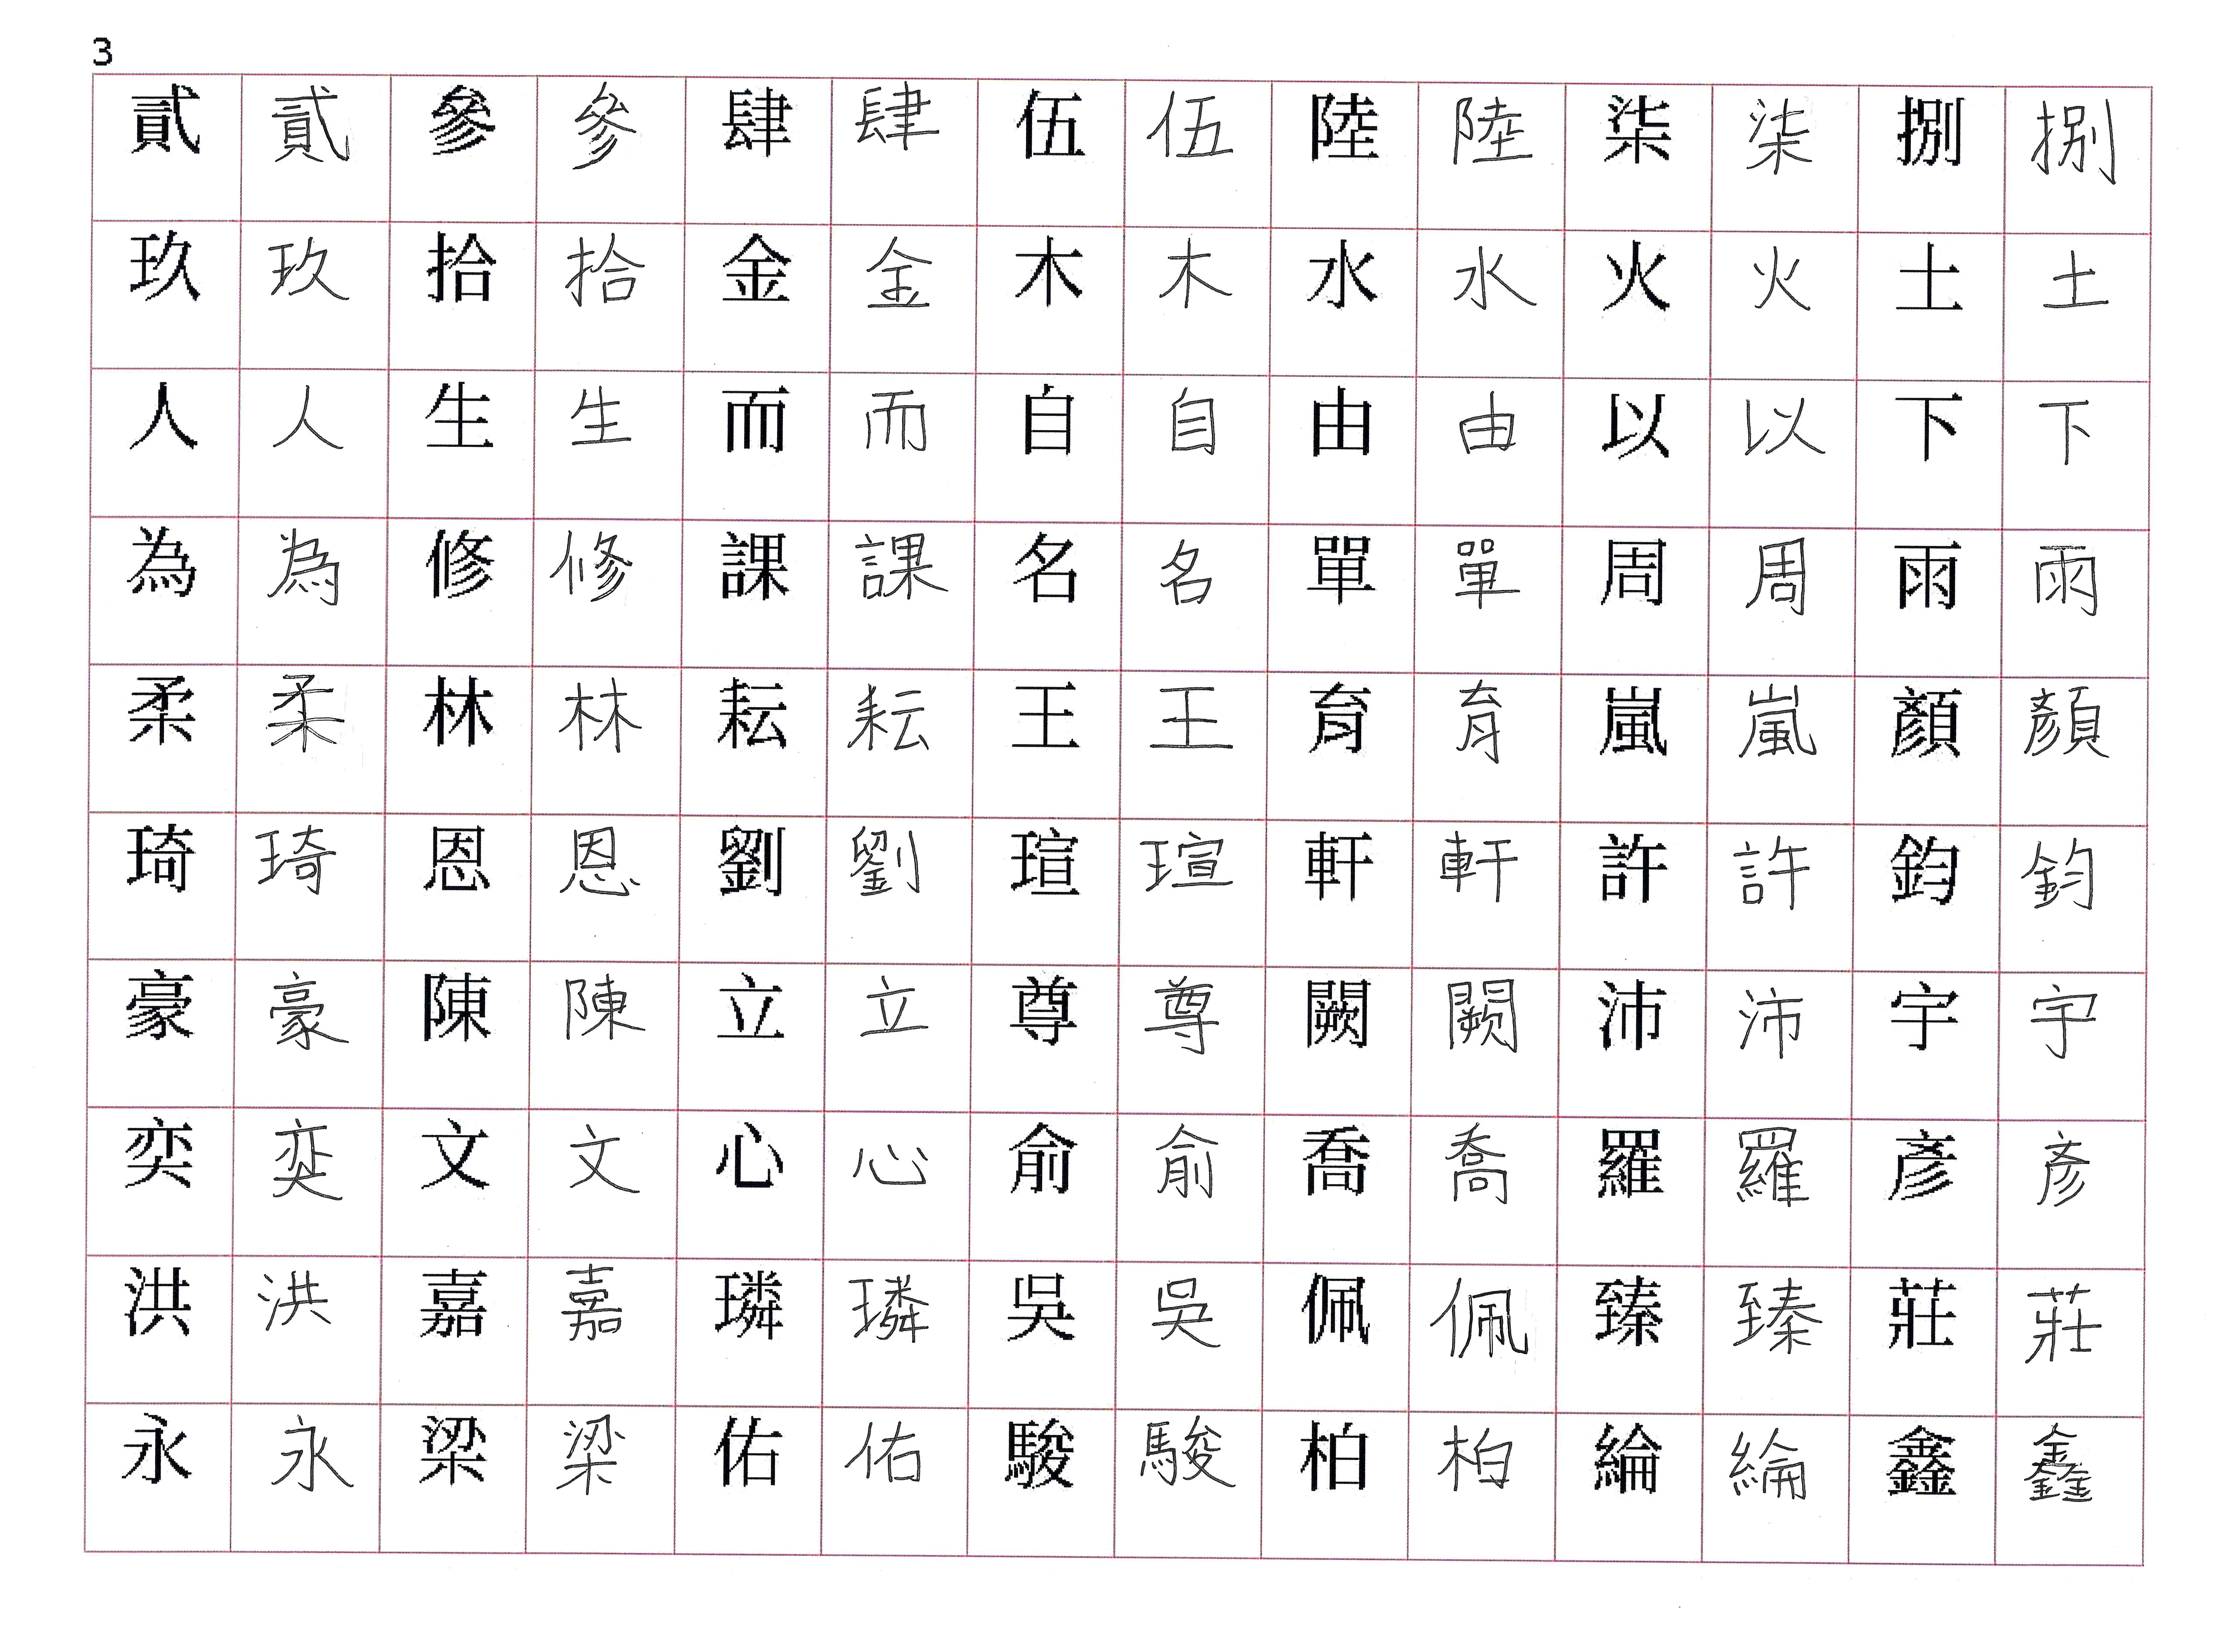 3
貳 貳 參 參 肆 肆 伍 伍 陸 陸 柒 柒 捌 捌
玖 玖 拾 拾 金 金 木 木 水 水 火 火 土 土
人 人 生 生 而 而 自 自 由 由 以 以 下 下
為 為 修 修 課 課 名 名 單 單 周 周 雨 雨
柔 柔 林 林 耘 耘 王 王 育 育 嵐 嵐 顏 顏
琦 琦 恩 恩 劉 劉 瑄 瑄 軒 軒 許 許 鈞 鈞
豪 豪 陳 陳 立 立 尊 尊 闕 闕 沛 沛 宇 宇
奕 奕 文 文 心 心 俞 俞 喬 喬 羅 羅 彥 彥
洪 洪 嘉 嘉 璘 璘 吳 吳 佩 佩 臻 臻 莊 莊
永 永 梁 梁 佑 佑 駿 駿 柏 柏 綸 綸 鑫 鑫